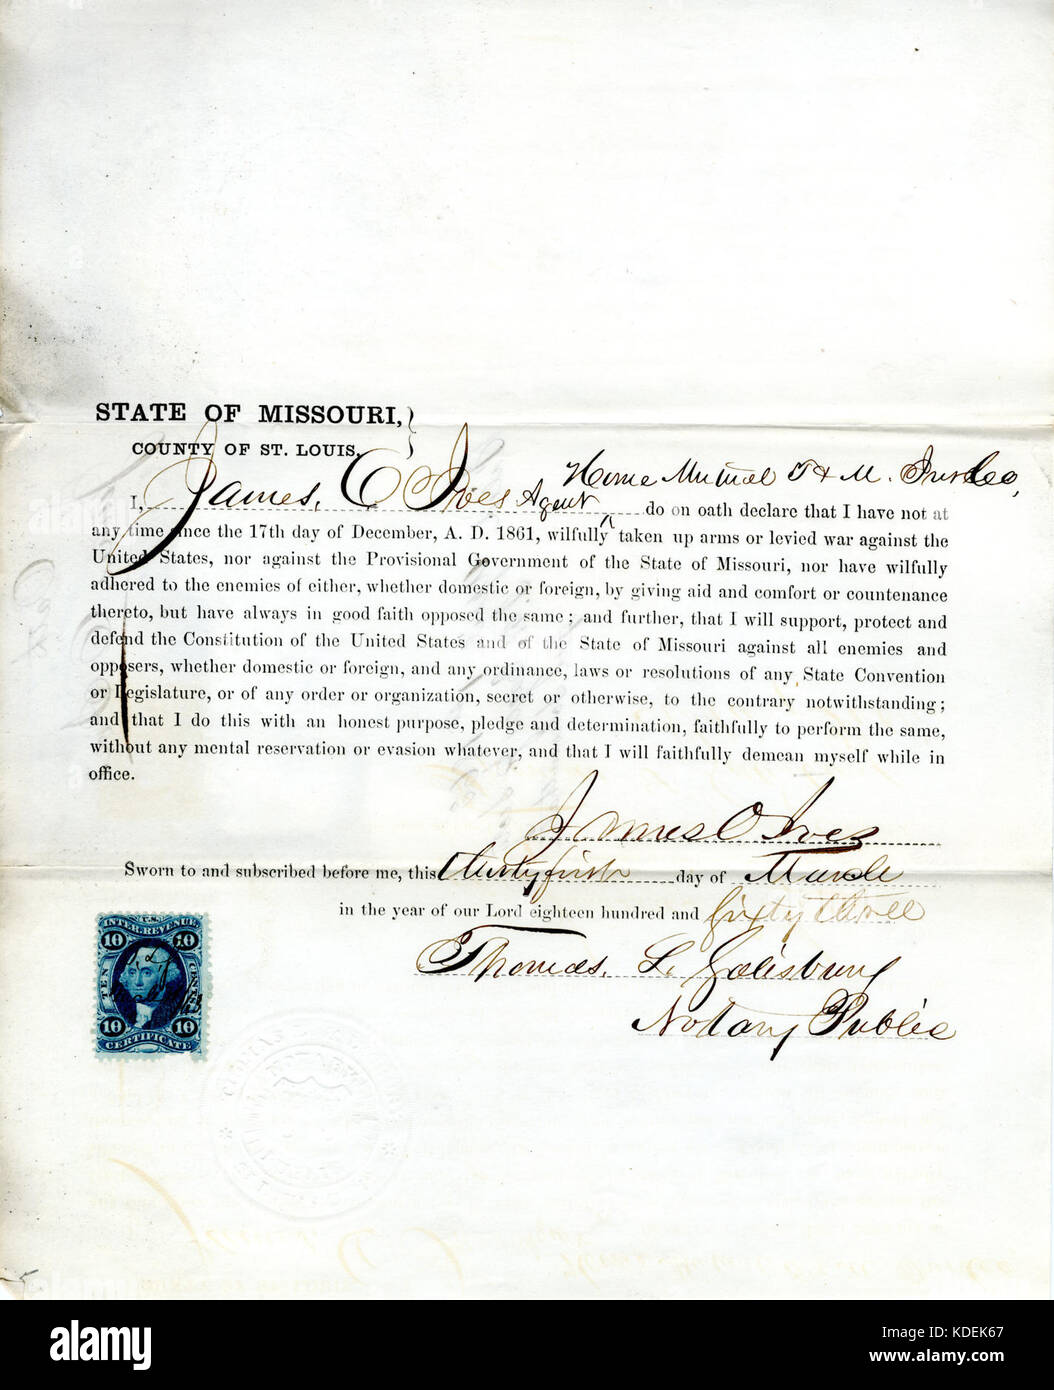 STATE OF MISSOURI,
COUNTY OF ST. LOUIS.
Home Mutual F & M. Ins Co,
I, James, O Ives Agent do on oath declare that I have not at
any time since the 17th day of December, A. D. 1861, wilfully taken up arms or levied war against the
United States, nor against the Provisional Government of the State of Missouri, nor have wilfully
adhered to the enemies of either, whether domestic or foreign, by giving aid and comfort or countenance
thereto, but have always in good faith opposed the same; and further, that I will support, protect and
defend the Constitution of the United States and of the State of Missouri against all enemies and
opposers, whether domestic or foreign, and any ordinance, laws or resolutions of any State Convention
or Legislature, or of any order or organization, secret or otherwise, to the contrary notwithstanding;
and that I do this with an honest purpose, pledge and determination, faithfully to perform the same,
without any mental reservation or evasion whatever, and that I will faithfully demean myself while in
office.
James O Ives
Sworn to and subscribed before me, this thirty first day of March
in the year of our Lord eighteen hundred and sixty three
Thomas. L. Salisbury
Notary Public
U.S.
INTER. REVENUE
10 10
TEN CENTS
10 10
CERTIFICATE
alamy
Image ID: KDEK67
www.alamy.com